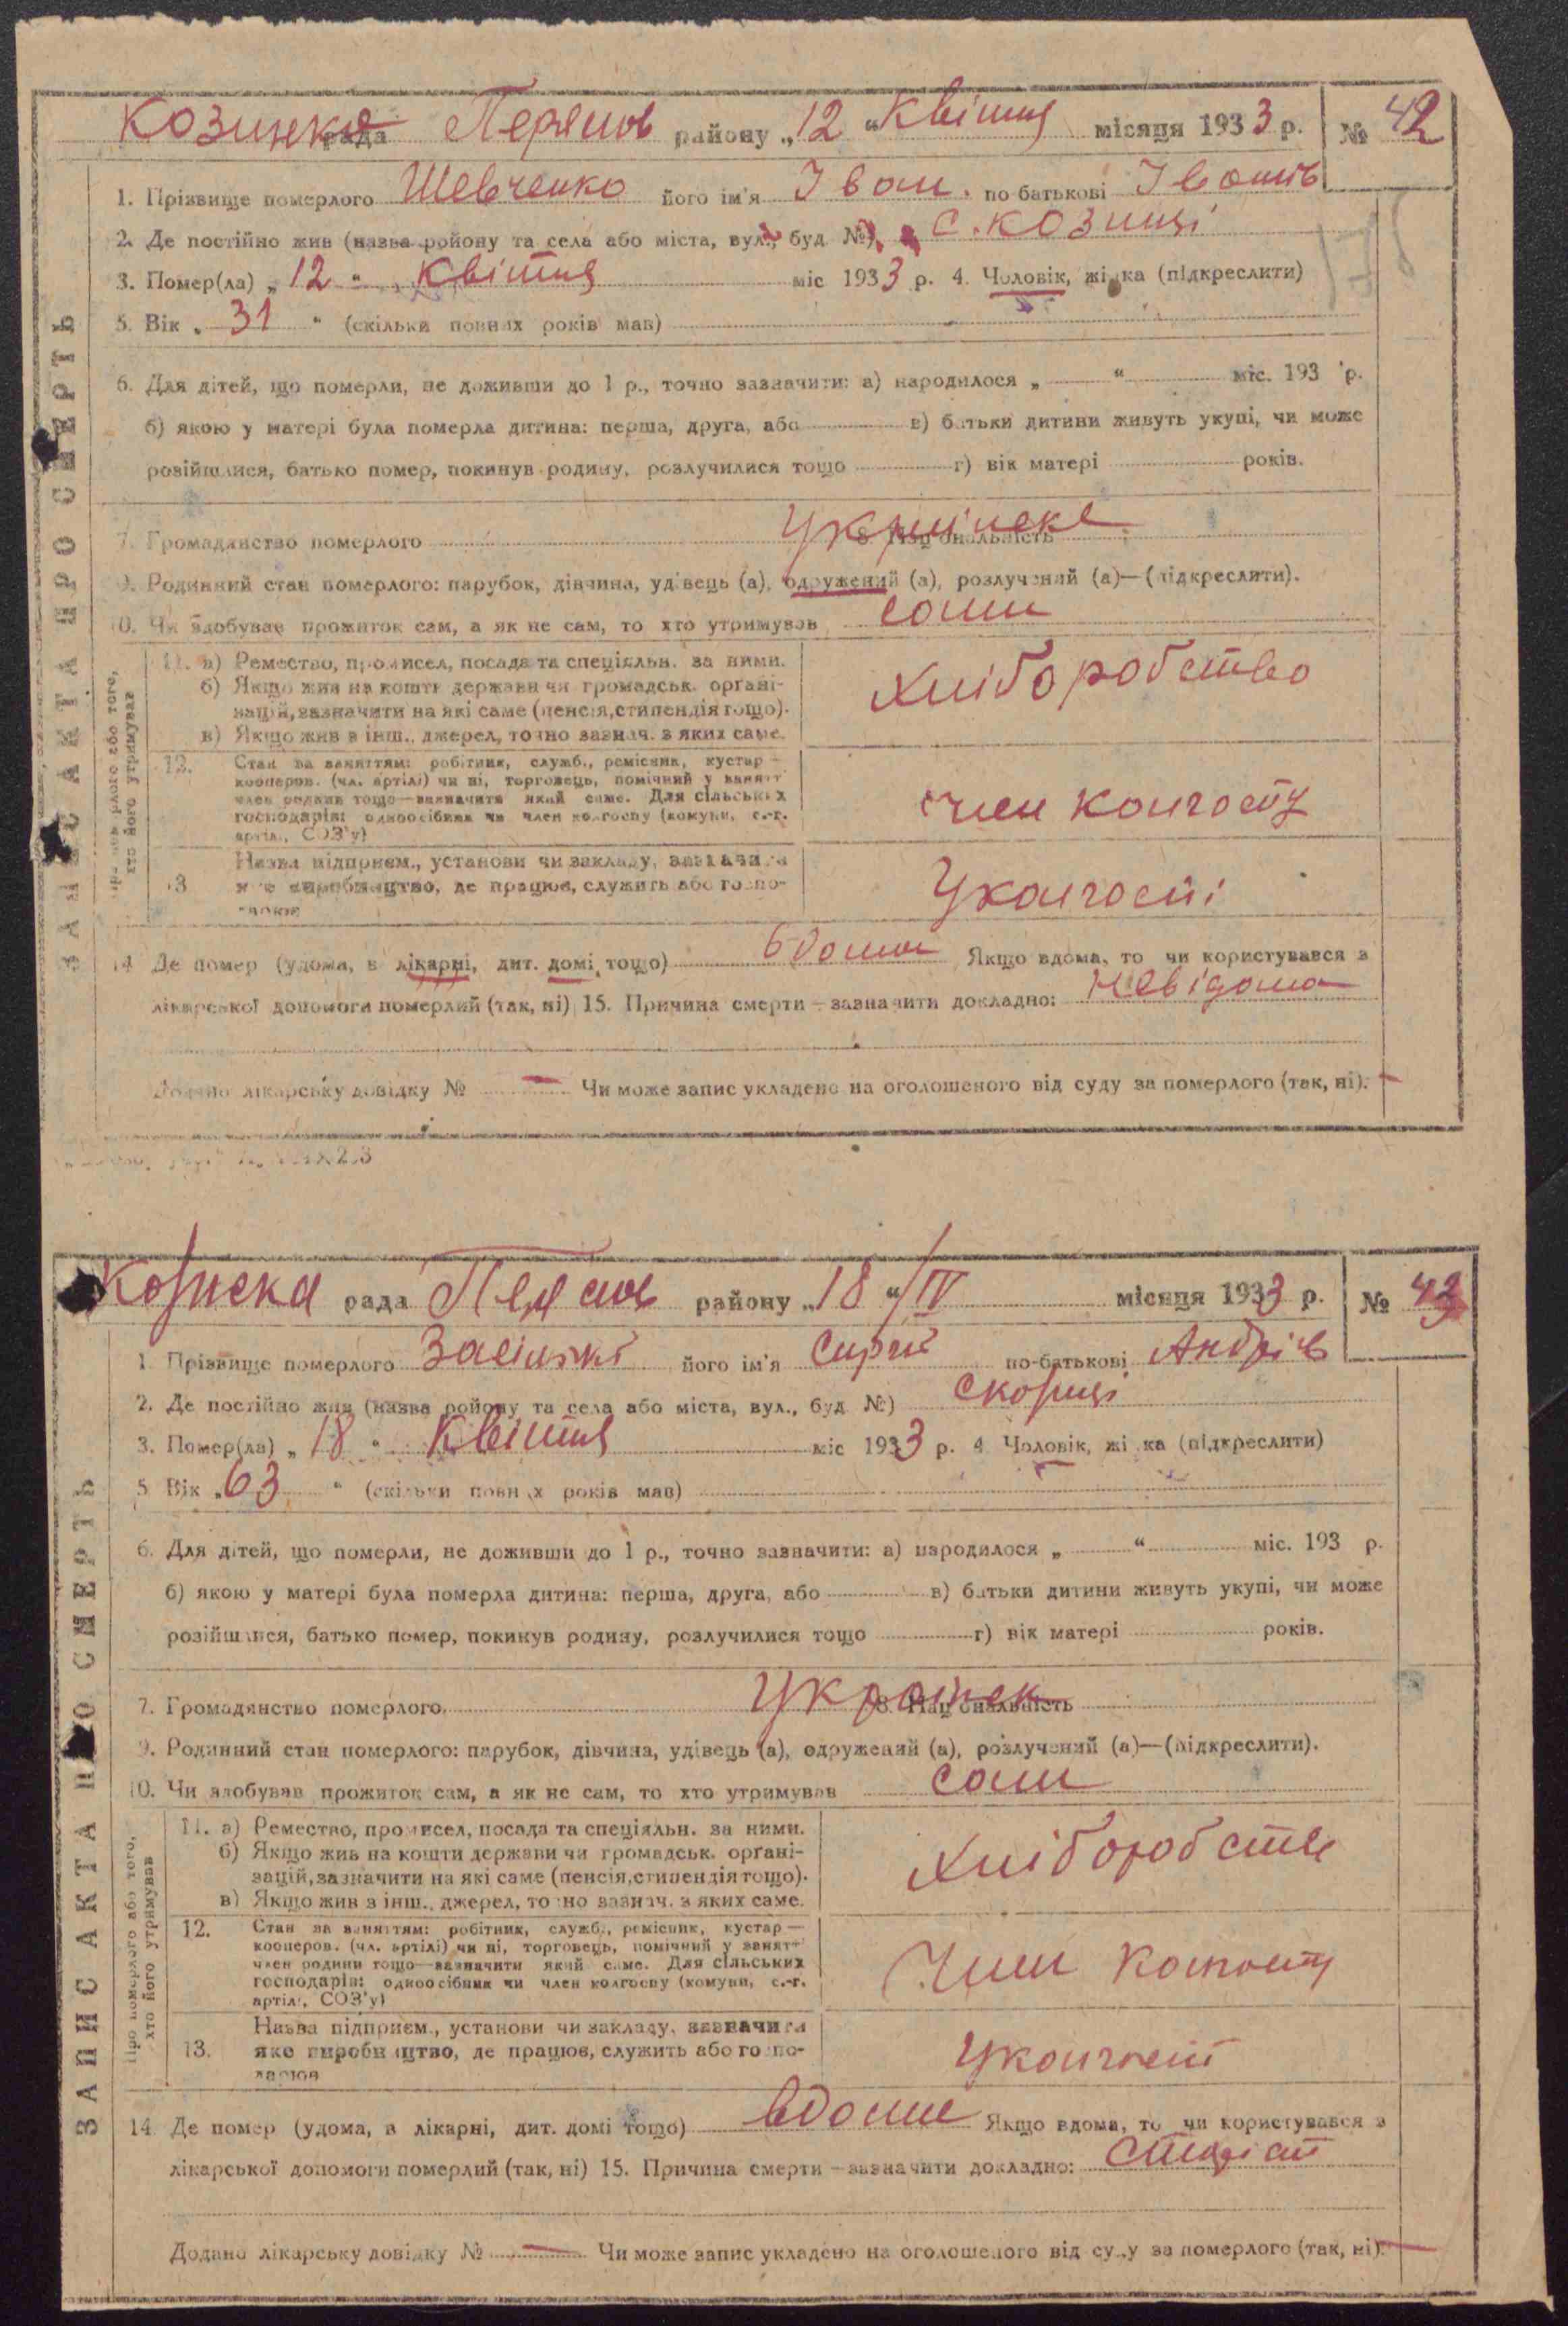 Козинка рада Переяслов району „12“ Квітня місяця 1933 р. № 42
1. Прізвище померлого Шевченко його ім'я Іван. по батькові Іванів
2. Де постійно жив (назва району та села або міста, вул., буд №) с. Козинці
3. Помер(ла) „12“ Квітня міс 1933 р. 4. Чоловік, жінка (підкреслити)
5. Вік „31“ (скільки повних років мав)
6. Для дітей, що померли, не доживши до 1 р., точно зазначити: а) народилося „ “ міс. 193 р.
б) якою у матері була померла дитина: перша, друга, або в) батьки дитини живуть укупі, чи може
розійшлися, батько помер, покинув родину, розлучилися тощо г) вік матері років.
7. Громадянство померлого 8. Національність Українське
9. Родинний стан померлого: парубок, дівчина, удівець (а), одружений (а), розлучений (а)—(підкреслити).
10. Чи здобував прожиток сам, а як не сам, то хто утримував сам
ЗАПИС АКТА ПРО СМЕРТЬ
Про померлого або того, хто його утримував
11. а) Ремество, промисел, посада та спеціяльн. за ними.
б) Якщо жив на кошти держави чи громадськ. органі-
зацій, зазначити на які саме (пенсія, стипендія тощо).
в) Якщо жив з інш., джерел, точно зазнач. з яких саме.
Хліборобство
12. Стан за заняттям: робітник, служб., ремісник, кустар—
кооперов. (чл. артілі) чи ні, торговець, помічний у занятт
член родини тощо—зазначити який саме. Для сільських
господарів: одноосібник чи член колгоспу (комуни, с.-г.
артілі, СОЗ'у)
член колгоспу
13. Назва підприєм., установи чи закладу, зазначити
яке виробництво, де працює, служить або госпо-
дарює
У колгоспі
14 Де помер (удома, в лікарні, дит. домі тощо) вдома Якщо вдома, то чи користувався з
лікарської допомоги померлий (так, ні) 15. Причина смерти—зазначити докладно: невідома
Додано лікарську довідку № — Чи може запис укладено на оголошеного від суду за померлого (так, ні). —
рада району „18“/IV місяця 1933 р. № 43
1. Прізвище померлого його ім'я по-батькові Андрів
2. Де постійно жив (назва району та села або міста, вул., буд №)
3. Помер(ла) „18“ Квітня міс 1933 р. 4 Чоловік, жінка (підкреслити)
5. Вік „63“ (скільки повних років мав)
6. Для дітей, що померли, не доживши до 1 р., точно зазначити: а) народилося „ “ міс. 193 р.
б) якою у матері була померла дитина: перша, друга, або в) батьки дитини живуть укупі, чи може
розійшлися, батько помер, покинув родину, розлучилися тощо г) вік матері років.
7. Громадянство померлого 8. Національність Українск
9. Родинний стан померлого: парубок, дівчина, удівець (а), одружений (а), розлучений (а)—(підкреслити).
10. Чи здобував прожиток сам, а як не сам, то хто утримував сам
ЗАПИС АКТА ПРО СМЕРТЬ
Про померлого або того, хто його утримував
11. а) Ремество, промисел, посада та спеціяльн. за ними.
б) Якщо жив на кошти держави чи громадськ. органі-
зацій, зазначити на які саме (пенсія, стипендія тощо).
в) Якщо жив з інш., джерел, точно зазнач. з яких саме.
Хліборобств
12. Стан за заняттям: робітник, служб., ремісник, кустар—
кооперов. (чл. артілі) чи ні, торговець, помічний у занятт
член родини тощо—зазначити який саме. Для сільських
господарів: одноосібник чи член колгоспу (комуни, с.-г.
артілі, СОЗ'у)
Член колгоспу
13. Назва підприєм., установи чи закладу, зазначити
яке виробництво, де працює, служить або госпо-
дарює
У колгоспі
14. Де помер (удома, в лікарні, дит. домі тощо) вдома Якщо вдома, то чи користувався з
лікарської допомоги померлий (так, ні) 15. Причина смерти—зазначити докладно: старість
Додано лікарську довідку № — Чи може запис укладено на оголошеного від суду за померлого (так, ні). —